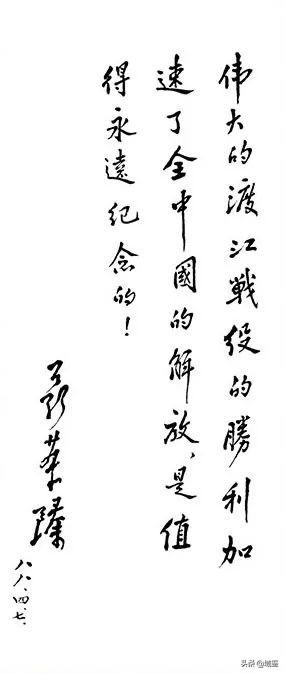 伟大的渡江戦役的勝利加
速了全中國的解放、是值
得永遠纪念的！
聂荣臻
八八、四、七、
头条 @